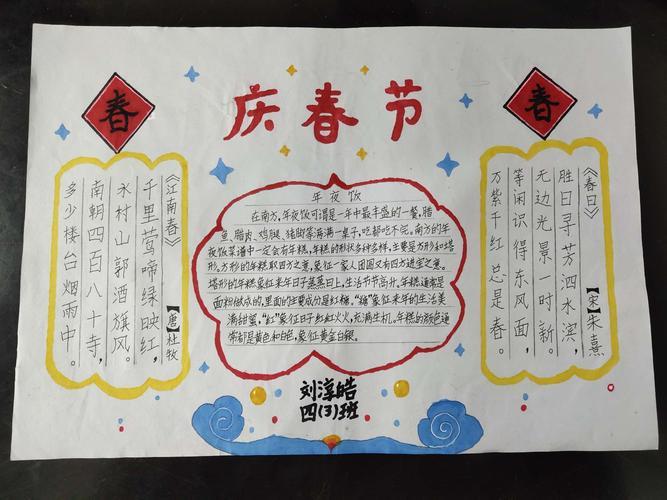 庆春节
春
春
《江南春》
【唐】杜牧
千里莺啼绿映红,
水村山郭酒旗风。
南朝四百八十寺,
多少楼台烟雨中。
年夜饭
在南方,年夜饭可谓是一年中最丰盛的一餐,腊
鱼、腊肉、鸡腿、猪脚等满一桌子,吃都吃不完。南方的年
夜饭菜谱中一定会有年糕,年糕的形状多种多样,主要是方形和塔
形。方形的年糕取四方之意,象征一家人团圆又有四方进宝之意。
塔形的年糕象征来年日子蒸蒸日上,生活节节高升。年糕通常是
面粉做成的,里面的主要成分是红糖,“糖”象征来年的生活美
满甜蜜,“红”象征日子红红火火,充满生机。年糕的颜色通
常都是黄色和白色,象征黄金白银。
《春日》
【宋】朱熹
胜日寻芳泗水滨,
无边光景一时新。
等闲识得东风面,
万紫千红总是春。
刘淳皓
四(3)班